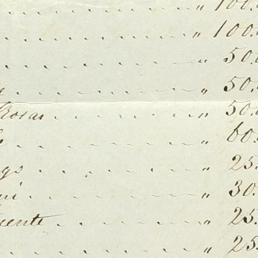 " 100.
" 100.
" 50.
" 50.
Rosas " 50.
" 60.
gs " 25.
" 30.
cente " 25.
" 25.